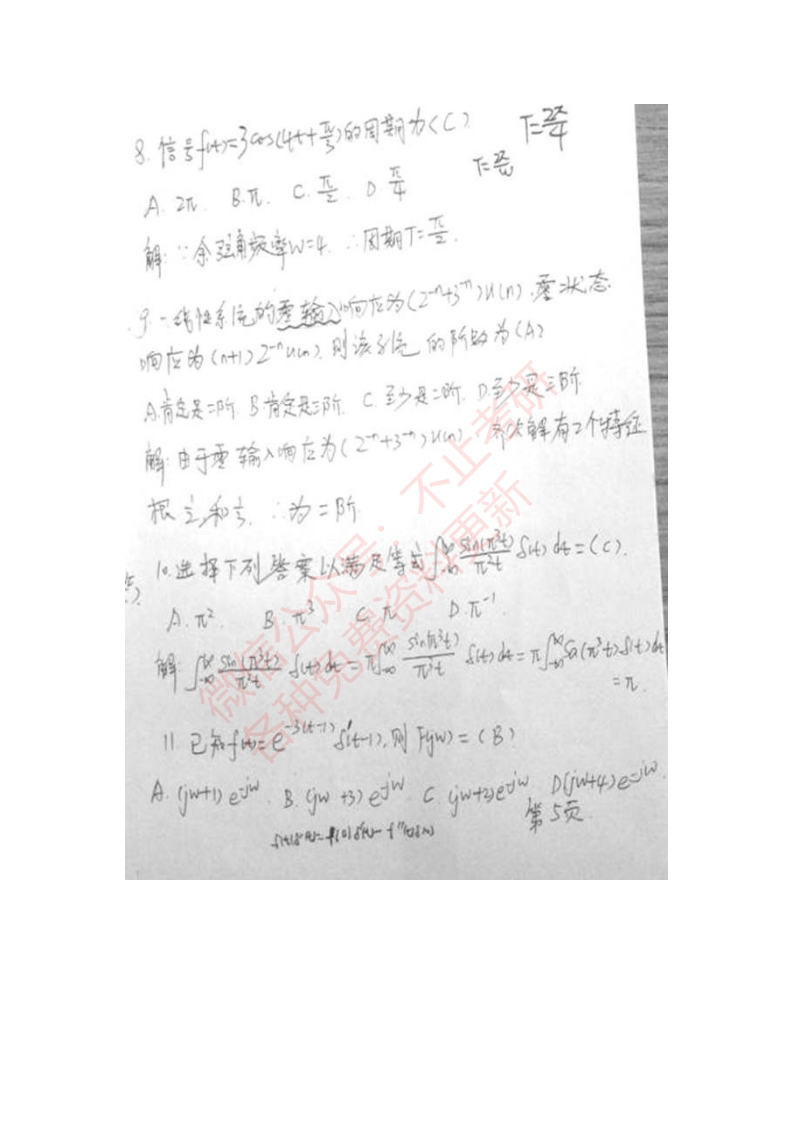 8. 信号f(t)=3cos(4t+π/3)的周期为(C) T=2π/4
T=2π/ω
A. 2π. B. π. C. π/2. D π/4
解: ∵余弦角频率w=4. ∴周期T=π/2.
9. 一线性系统的零输入响应为(2⁻ⁿ+3⁻ⁿ)u(n), 零状态
响应为(n+1)2⁻ⁿu(n), 则该系统的阶数为(A)
A.肯定是二阶 B.肯定是三阶. C. 至少是二阶. D.至少是三阶
解: 由于零输入响应为(2⁻ⁿ+3⁻ⁿ)u(n) 齐次解有2个特征
根 1/2和1/3. ∴为二阶
10. 选择下列答案以满足等式∫_{-∞}^{∞} sin(π³t)/π²t δ(t) dt=(C).
A. π². B. π³ C. π. D. π⁻¹.
解: ∫_{-∞}^{∞} sin(π³t)/π²t δ(t)dt = π∫_{-∞}^{∞} sin(π³t)/π³t δ(t)dt = π∫_{-∞}^{∞} Sa(π³t)δ(t)dt
=π.
11. 已知f(t)=e^{-3(t-1)}δ'(t-1), 则 F(jw)=(B)
A. (jw+1)e^{-jw}. B. (jw+3)e^{-jw}. C. (jw+2)e^{-jw}. D(jw+4)e^{-jw}.
第5页.
微信公众号：不止考研
各种免费资料更新